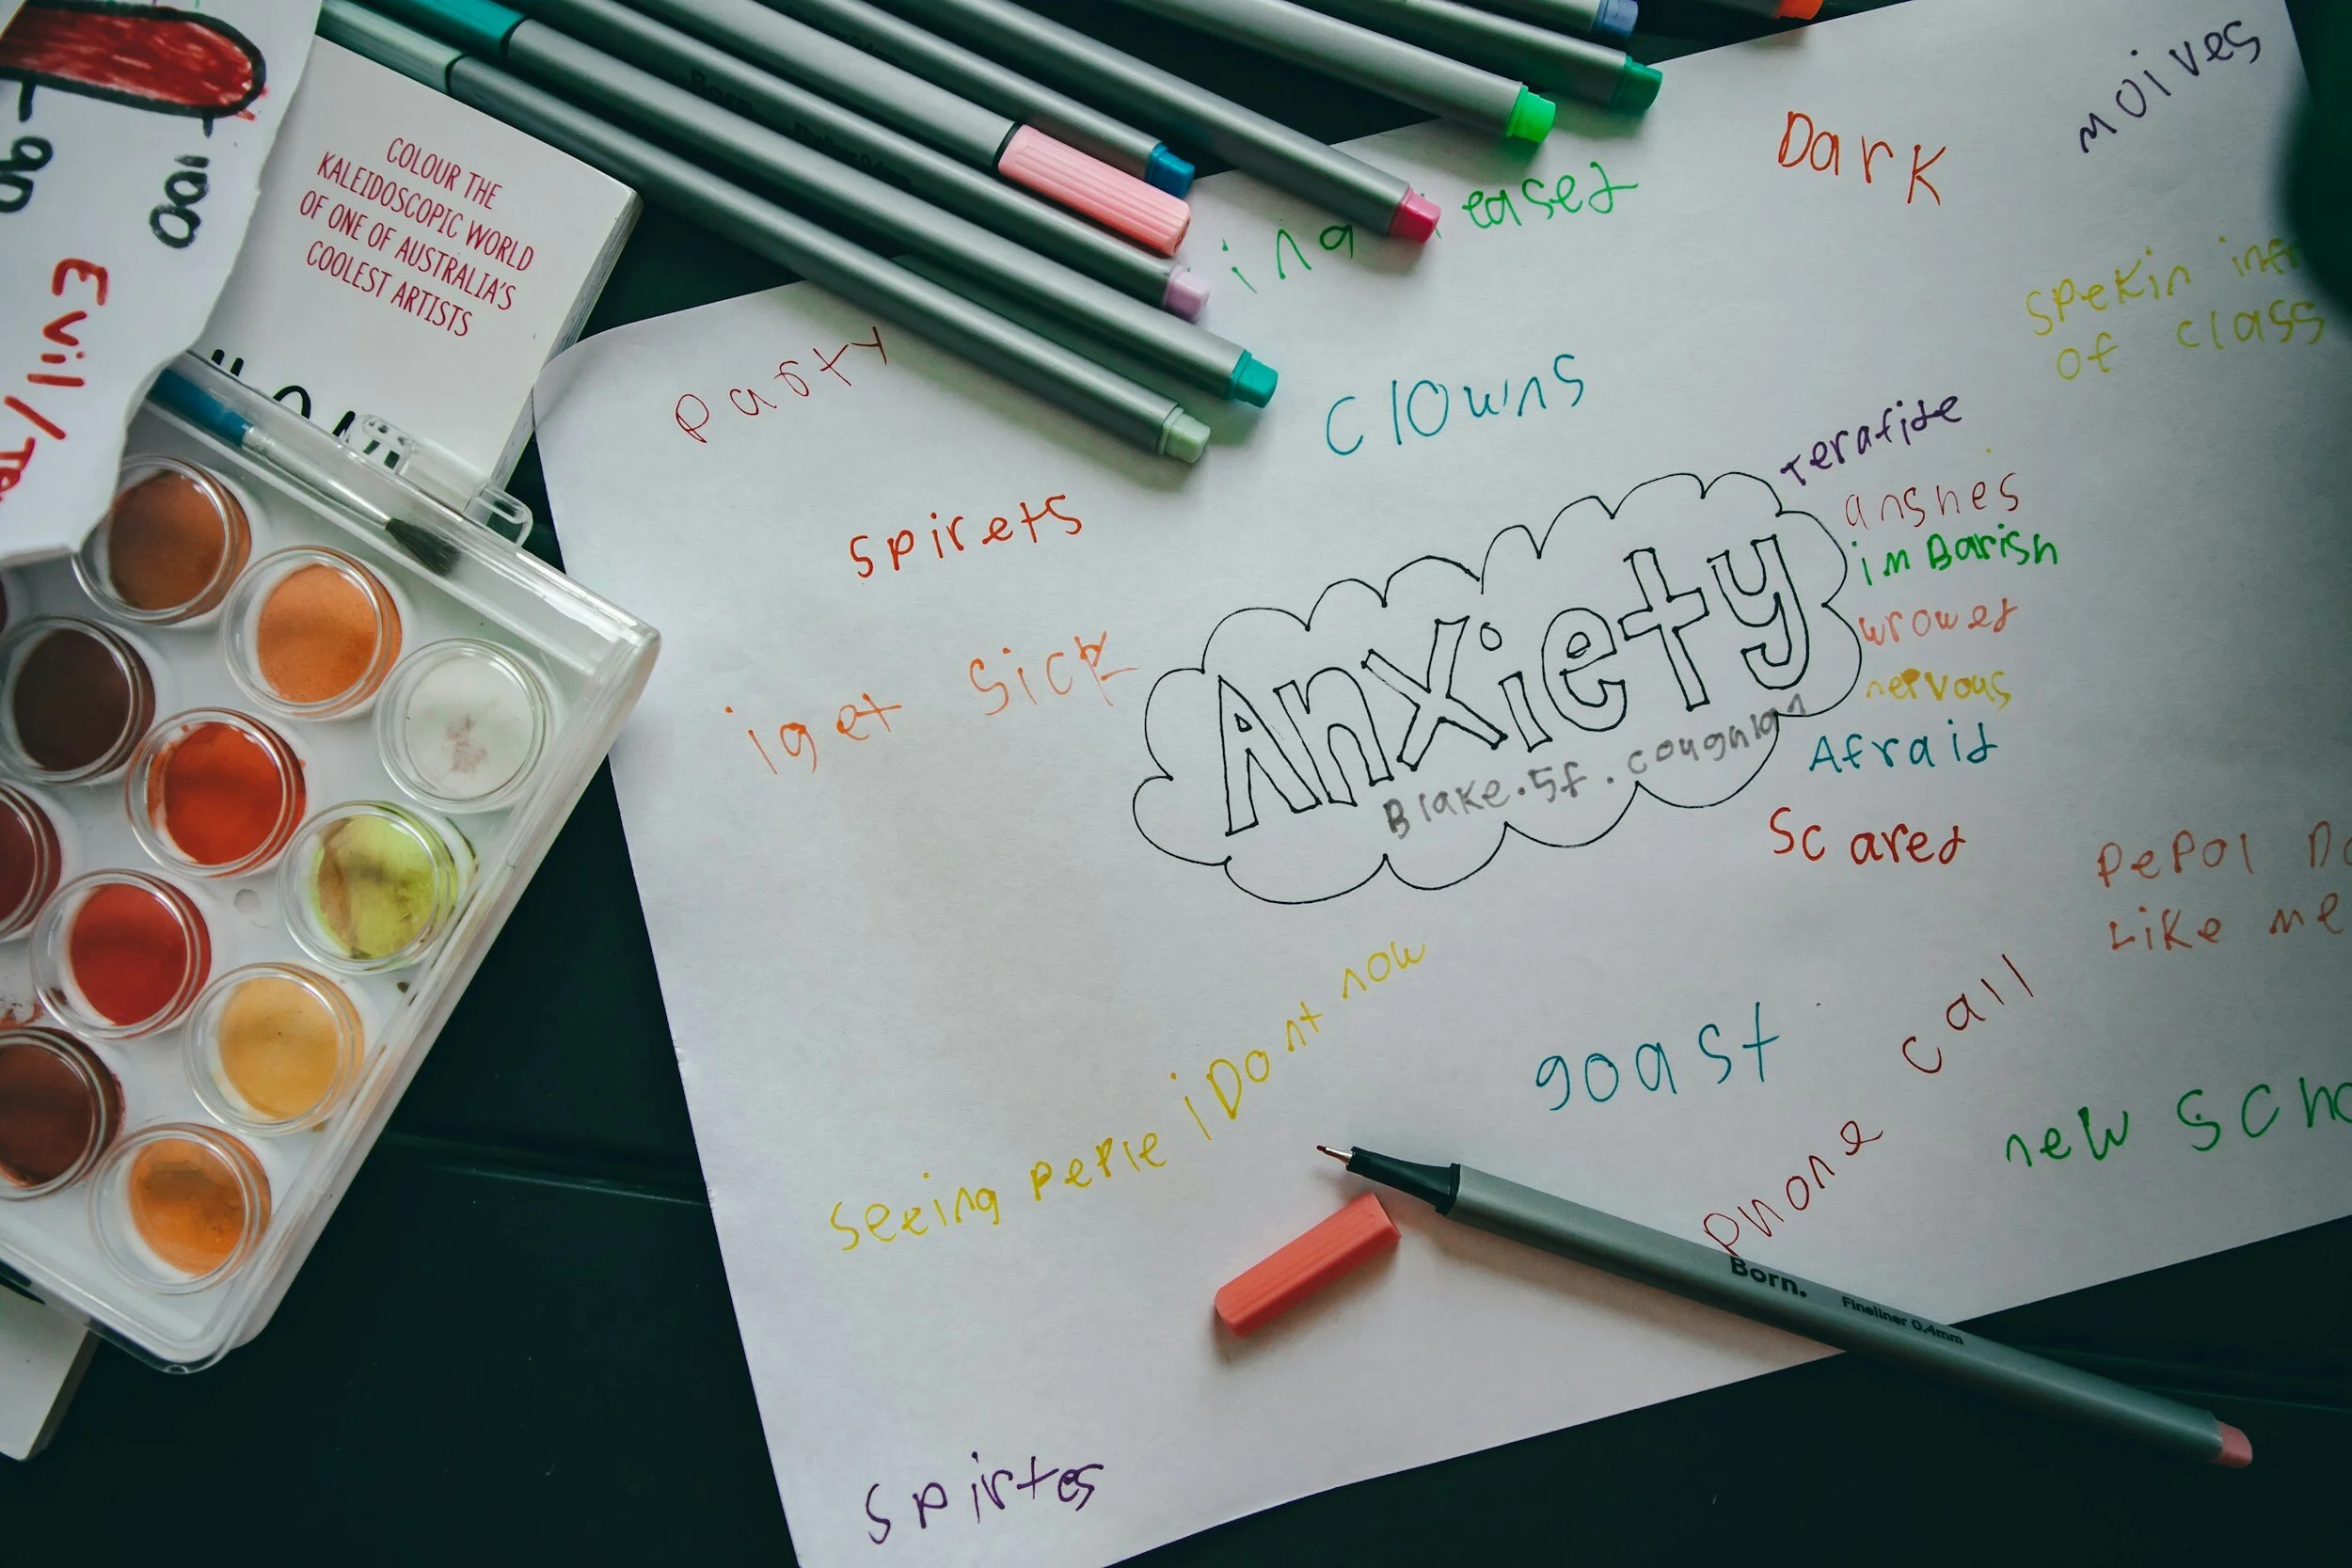 COLOUR THE
KALEIDOSCOPIC WORLD
OF ONE OF AUSTRALIA'S
COOLEST ARTISTS
100
Evil/
Born.
moives
Dark
eased
spekin
of class
party
Clowns
terafide
anshes
imBarish
wrowed
nervous
Afraid
Scared
spirets
iget sick
Anxiety
Blake.5f.coughlan
pepol
Like me
seeing peple i Dont now
goast
phone call
new
Born. Fineliner 0.4mm
spirtes